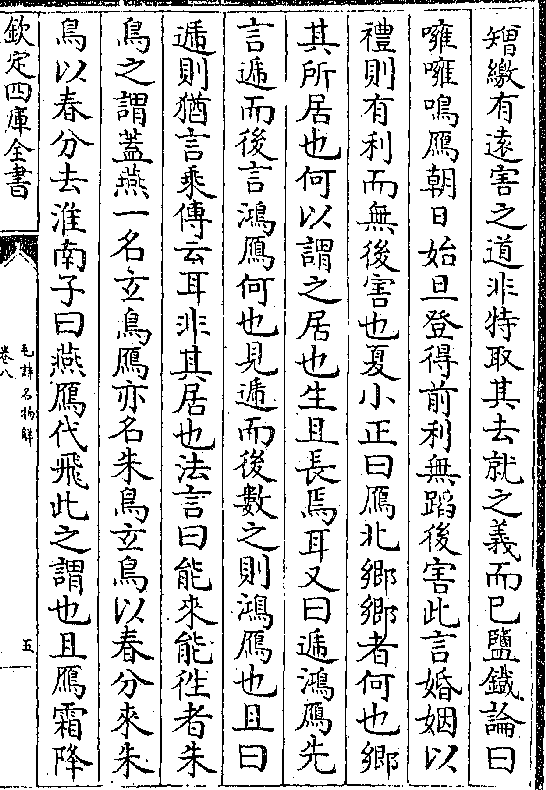 矰繳有遠害之道非特取其去就之義而已鹽鐵論曰
嗈嗈鳴鴈朝日始旦登得前利無蹈後害此言婚姻以
禮則有利而無後害也夏小正曰鴈北鄉鄉者何也鄉
其所居也何以謂之居也生且長焉耳又曰遰鴻鴈先
言遰而後言鴻鴈何也見遰而後數之則鴻鴈也且曰
遰則猶言乘傳云耳非其居也法言曰能來能徃者朱
鳥之謂葢燕一名玄鳥鴈亦名朱鳥玄鳥以春分來朱
鳥以春分去淮南子曰燕鴈代飛此之謂也且鴈霜降
欽定四庫全書
毛詩名物解
卷八
五